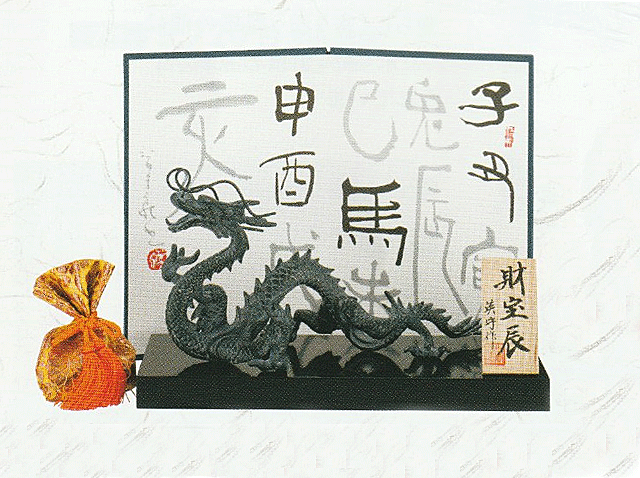 子丑
寅
兎辰
巳
馬
未
申酉
戌
亥
財宝辰